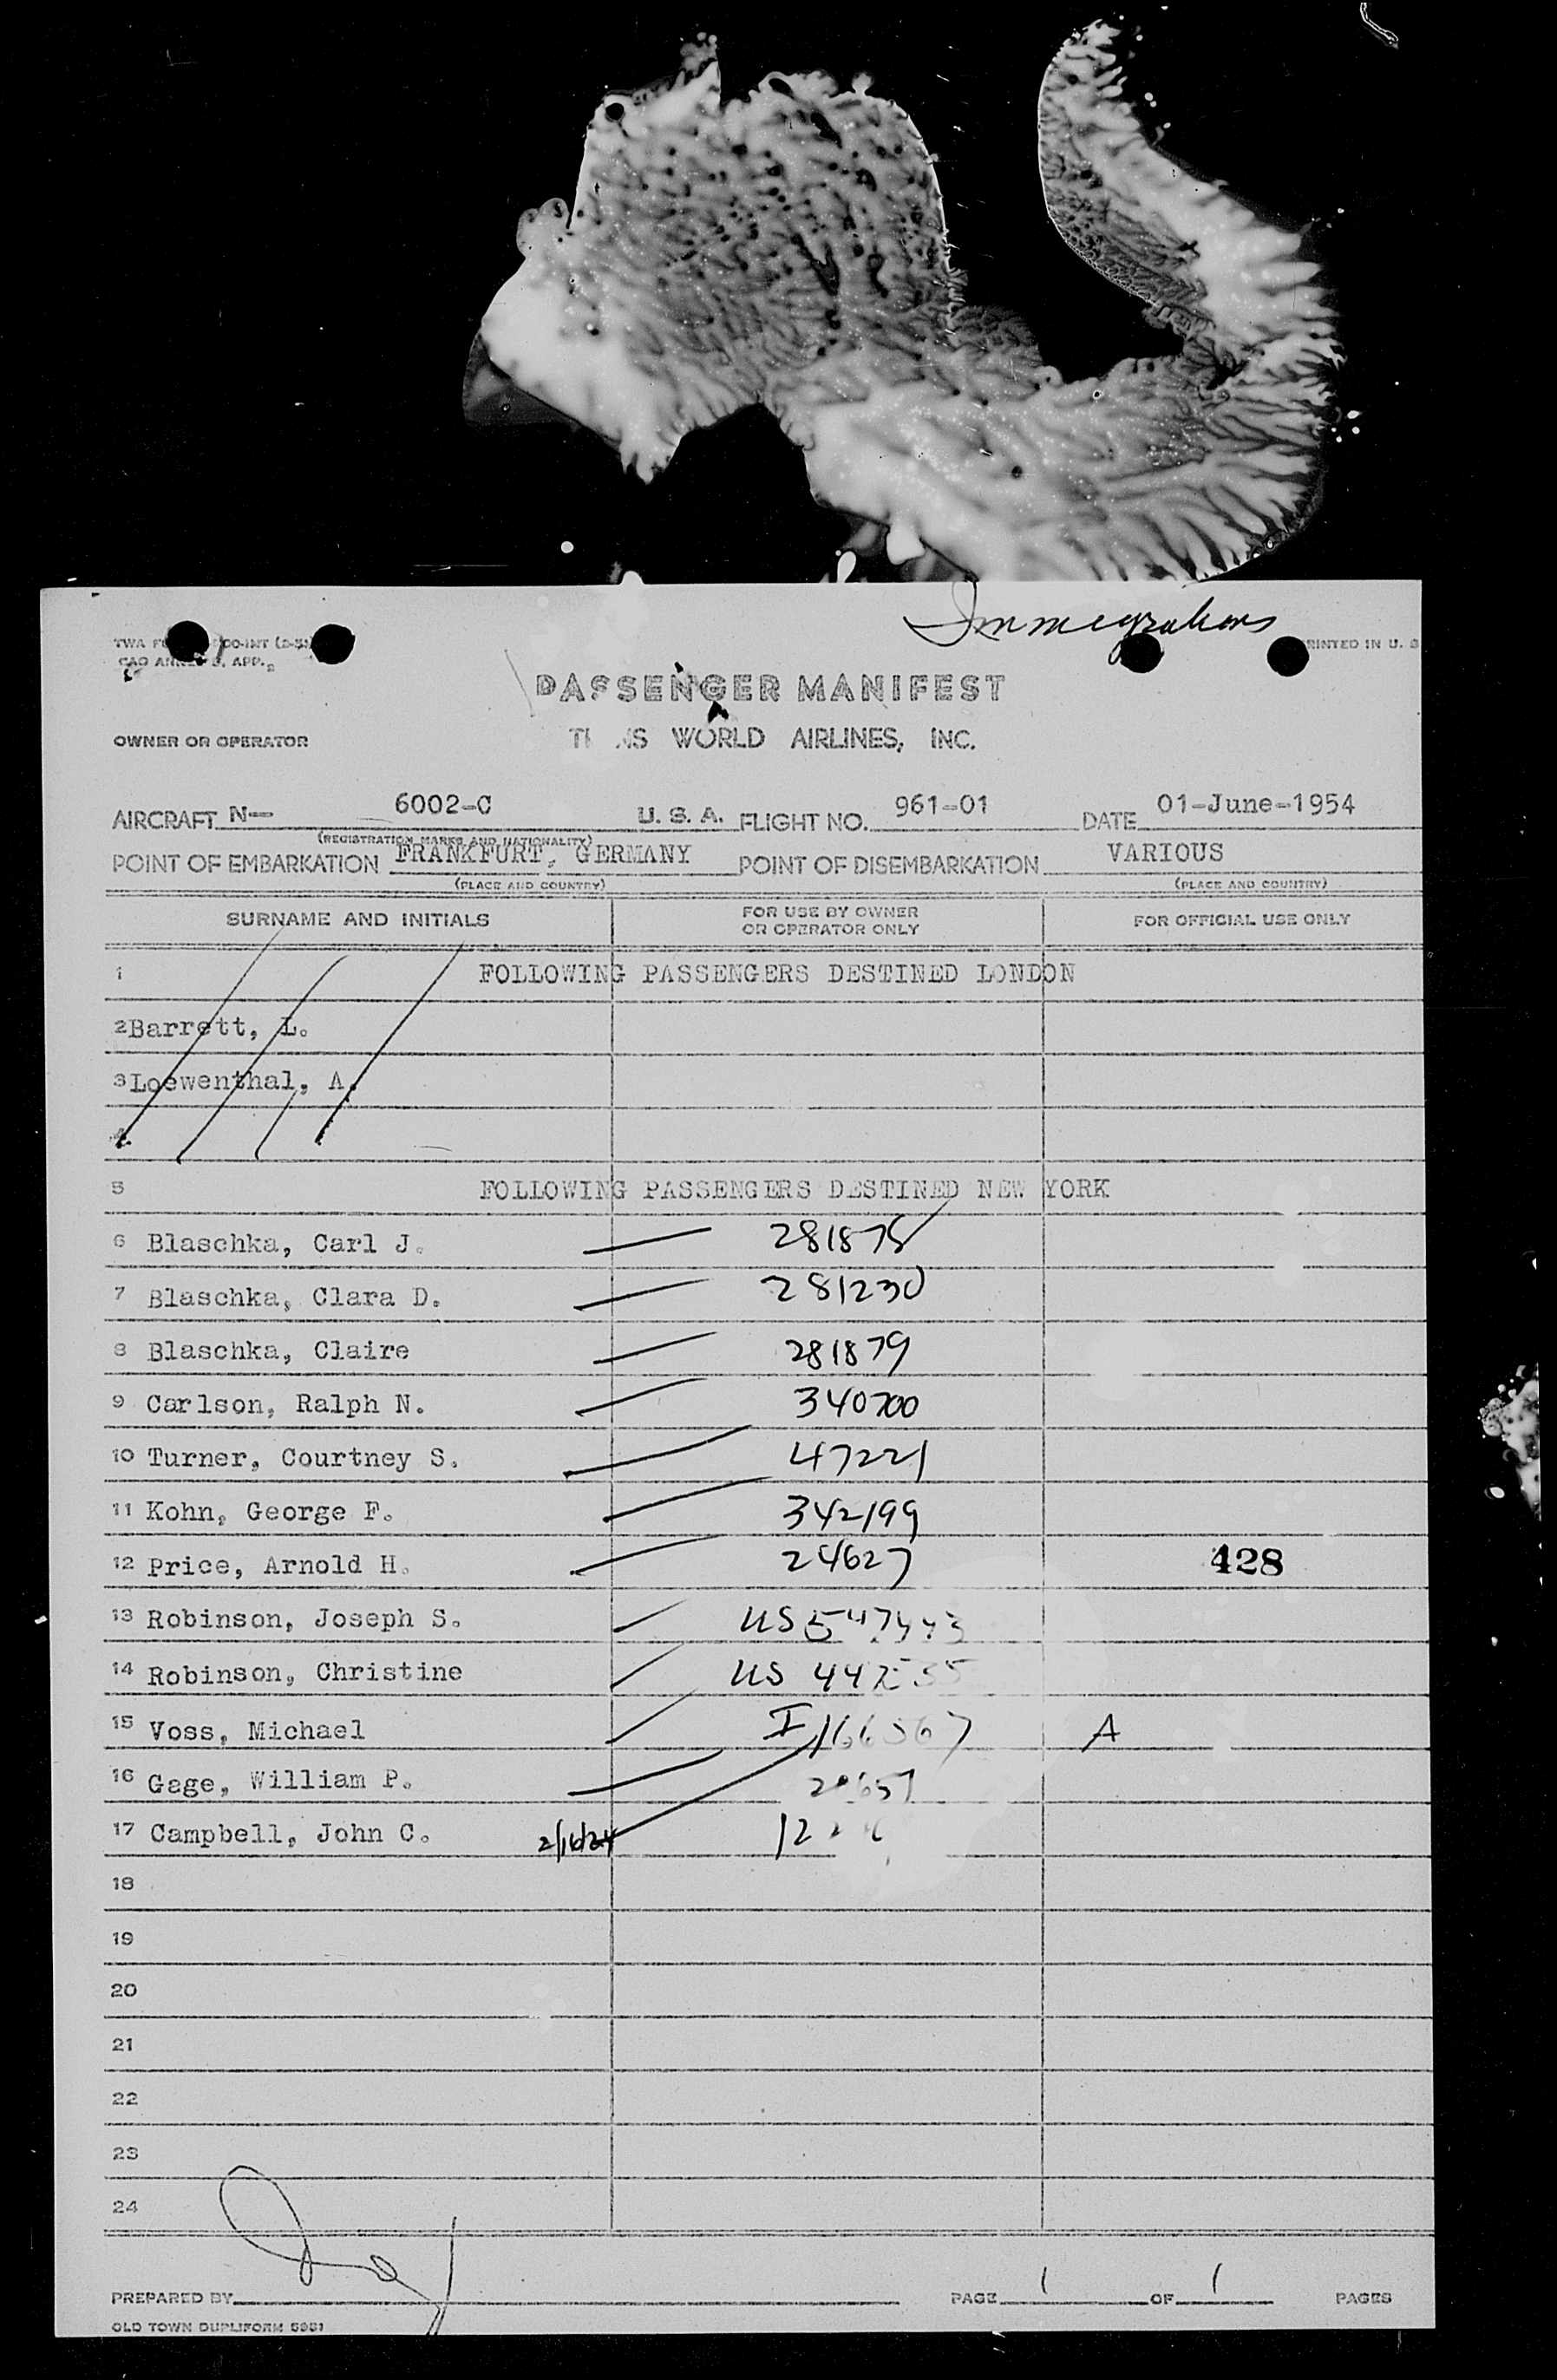 Immigrations
PRINTED IN U. S.
PASSENGER MANIFEST
OWNER OR OPERATOR
WORLD AIRLINES, INC.
AIRCRAFT N— 6002-C U. S. A. FLIGHT NO. 961-01 DATE 01-June-1954
(REGISTRATION MARKS AND NATIONALITY)
POINT OF EMBARKATION FRANKFURT, GERMANY POINT OF DISEMBARKATION VARIOUS
(PLACE AND COUNTRY) (PLACE AND COUNTRY)
SURNAME AND INITIALS FOR USE BY OWNER OR OPERATOR ONLY FOR OFFICIAL USE ONLY
1 FOLLOWING PASSENGERS DESTINED LONDON
2 Barrett, L.
3 Loewenthal, A.
4
5 FOLLOWING PASSENGERS DESTINED NEW YORK
6 Blaschka, Carl J. 281878
7 Blaschka, Clara D. 281230
8 Blaschka, Claire 281879
9 Carlson, Ralph N. 340700
10 Turner, Courtney S. 47221
11 Kohn, George F. 342199
12 Price, Arnold H. 24627 428
13 Robinson, Joseph S. US
14 Robinson, Christine US
15 Voss, Michael A
16 Gage, William P.
17 Campbell, John C. 2/16/24
18
19
20
21
22
23
24
PREPARED BY PAGE 1 OF 1 PAGES
OLD TOWN DUPLIFORM 5951